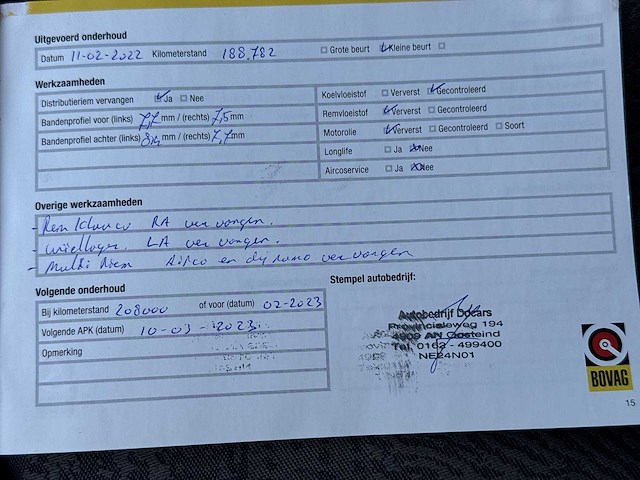 Uitgevoerd onderhoud
Datum 11-02-2022 Kilometerstand 188.782 Grote beurt Kleine beurt
Werkzaamheden
Distributieriem vervangen Ja Nee
Bandenprofiel voor (links) 7,7 mm / (rechts) 7,5 mm
Bandenprofiel achter (links) mm / (rechts) 7,7 mm
Koelvloeistof Ververst Gecontroleerd
Remvloeistof Ververst Gecontroleerd
Motorolie Ververst Gecontroleerd Soort
Longlife Ja Nee
Aircoservice Ja Nee
Overige werkzaamheden
- Remklauw RA vervangen.
- wiellager LA vervangen.
- Multi Riem Airco en dynamo vervangen
Volgende onderhoud
Bij kilometerstand 208000 of voor (datum) 02-2023
Volgende APK (datum) 10-03-2023
Opmerking
Stempel autobedrijf:
Autobedrijf Docars
Provincialeweg 194
4909 AN Oosteind
Tel. 0162 - 499400
NE24N01
BOVAG
15